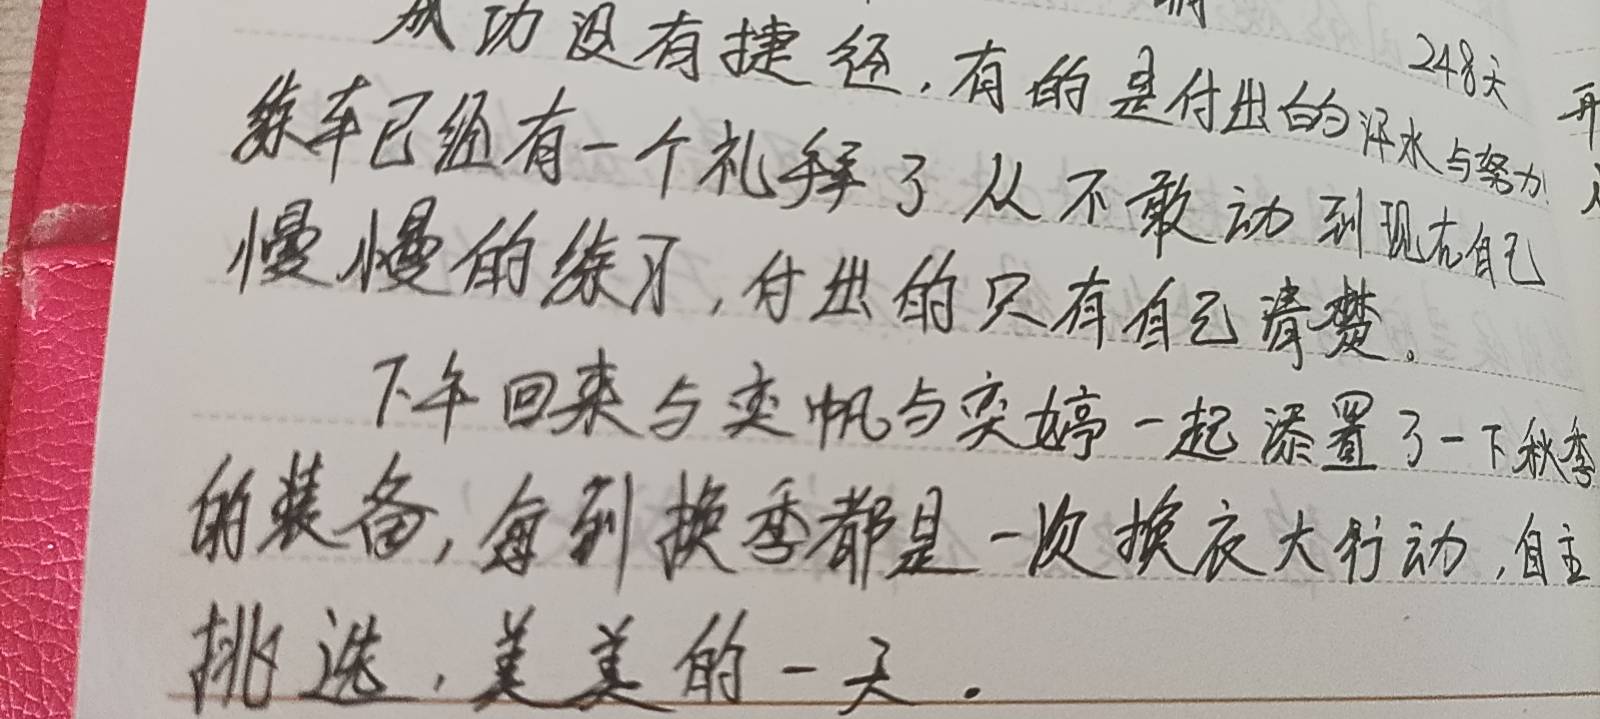 248天
成功没有捷径,有的是付出的汗水与努力
练车已经有一个礼拜了从不敢动到现在自己
慢慢的练习,付出的只有自己清楚。
下午回来与奕帆与奕婷一起添置了一下秋季
的装备,每到换季都是一次换衣大行动,自主
挑选,美美的一天.